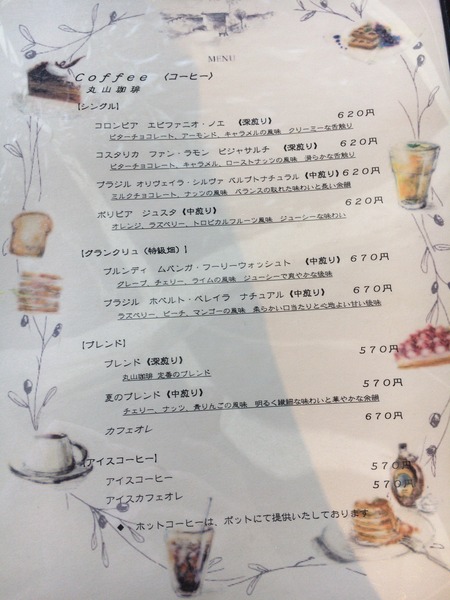 MENU
Coffee 〈コーヒー〉
丸山珈琲
【シングル】
コロンビア エピファニオ・ノエ 《深煎り》 620円
ビターチョコレート、アーモンド、キャラメルの風味 クリーミーな舌触り
コスタリカ ファン・ラモン ビジャサルチ 《深煎り》 620円
ビターチョコレート、キャラメル、ローストナッツの風味 滑らかな舌触り
ブラジル オリヴェイラ・シルヴァ パルプトナチュラル《中煎り》620円
ミルクチョコレート、ナッツの風味 バランスの取れた味わいと長い余韻
ボリビア ジュスタ《中煎り》 620円
オレンジ、ラズベリー、トロピカルフルーツ風味 ジューシーな味わい
【グランクリュ（特級畑）】
ブルンディ ムバンガ・フーリーウォッシュト 《中煎り》 670円
グレープ、チェリー、ライムの風味 ジューシーで爽やかな後味
ブラジル ホベルト・ペレイラ ナチュアル《中煎り》 670円
ラズベリー、ピーチ、マンゴーの風味 柔らかい口当たりと心地よい甘い後味
【ブレンド】 570円
ブレンド《深煎り》
丸山珈琲 定番のブレンド
夏のブレンド《中煎り》 570円
チェリー、ナッツ、青りんごの風味 明るく繊細な味わいと華やかな余韻
カフェオレ 670円
【アイスコーヒー】 570円
アイスコーヒー 570円
アイスカフェオレ
◆ ホットコーヒーは、ポットにて提供いたしております